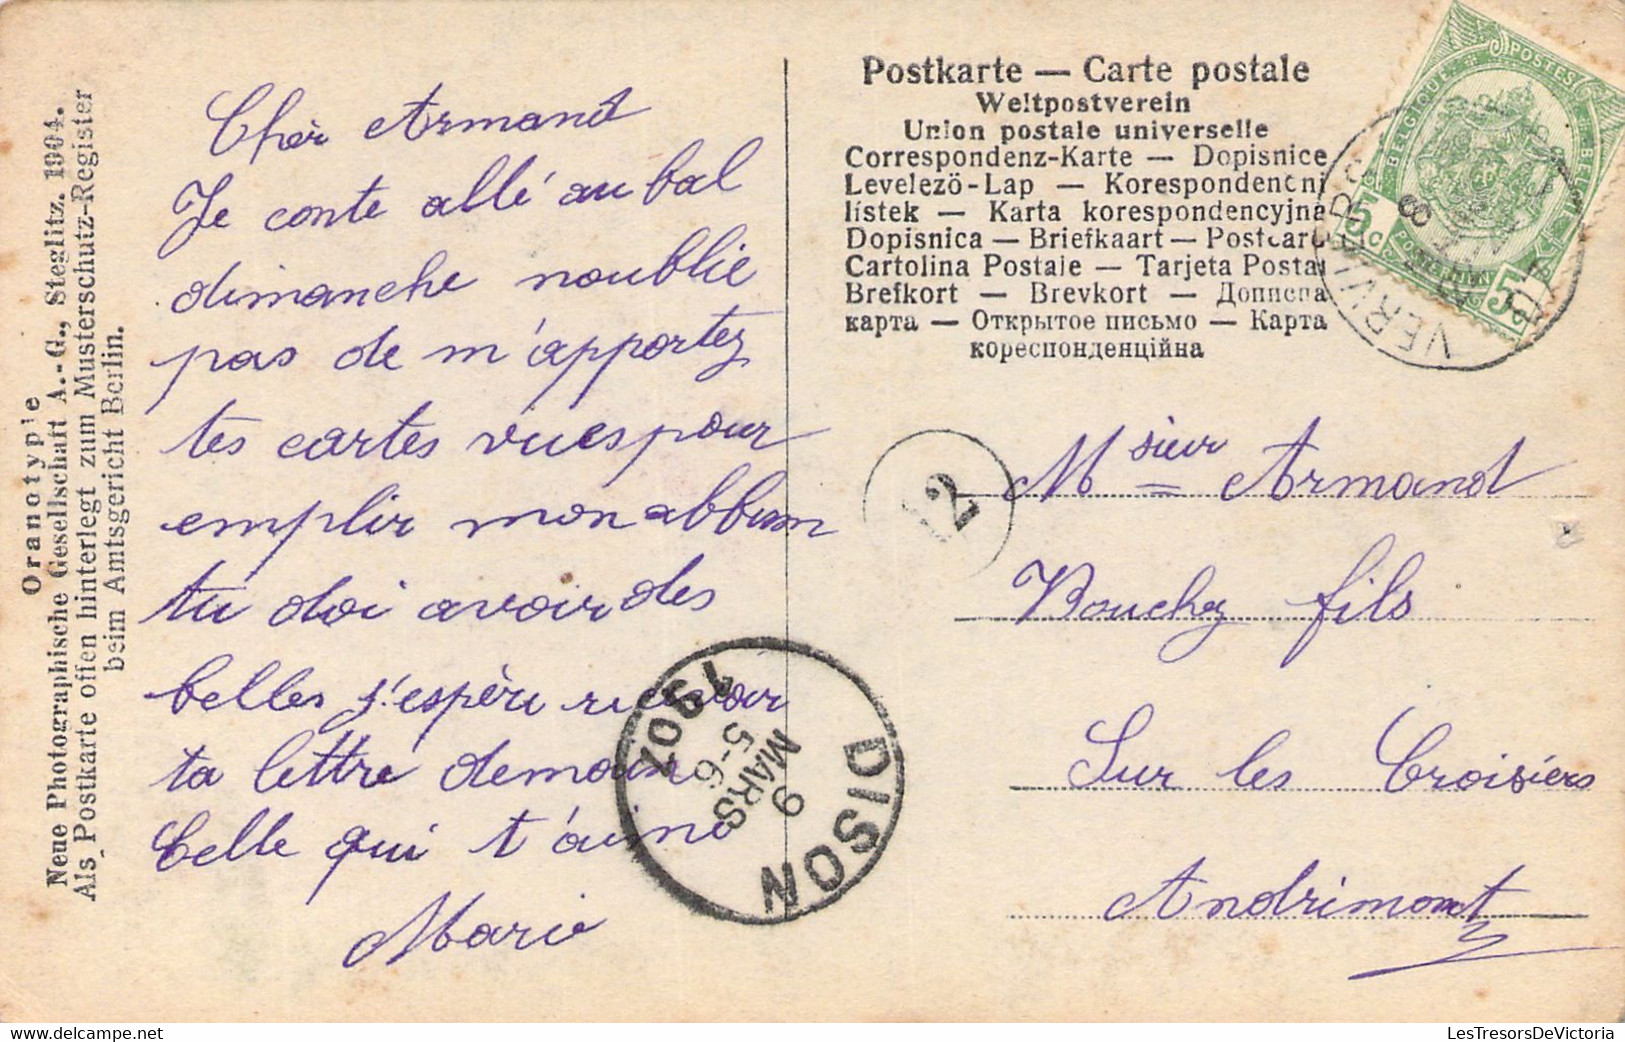 Oranotypie
Neue Photographische Gesellschaft A.-G., Steglitz. 1904.
Als Postkarte offen hinterlegt zum Musterschutz-Register
beim Amtsgericht Berlin.
Chèr Armand
Je conte allé au bal
dimanche noublie
pas de m'apportez
tes cartes vues pour
emplir mon abbum
tu doi avoir des
belles j'espère recevoir
ta lettre demain
Celle qui t'aime
Marie
Postkarte — Carte postale
Weltpostverein
Union postale universelle
Correspondenz-Karte — Dopisnice
Levelező-Lap — Korespondenční
lístek — Karta korespondencyjna
Dopisnica — Briefkaart — Postcard
Cartolina Postale — Tarjeta Postal
Brefkort — Brevkort — Дописна
карта — Открытое письмо — Карта
кореспонденційна
POSTES
BELGIQUE BELGIË
5 C
5 C
VERVIERS
8
12
Msieur Armand
Bouchez fils
Sur les Croisiers
Andrimont
DISON
9
MARS
5-6
1907
LesTresorsDeVictoria